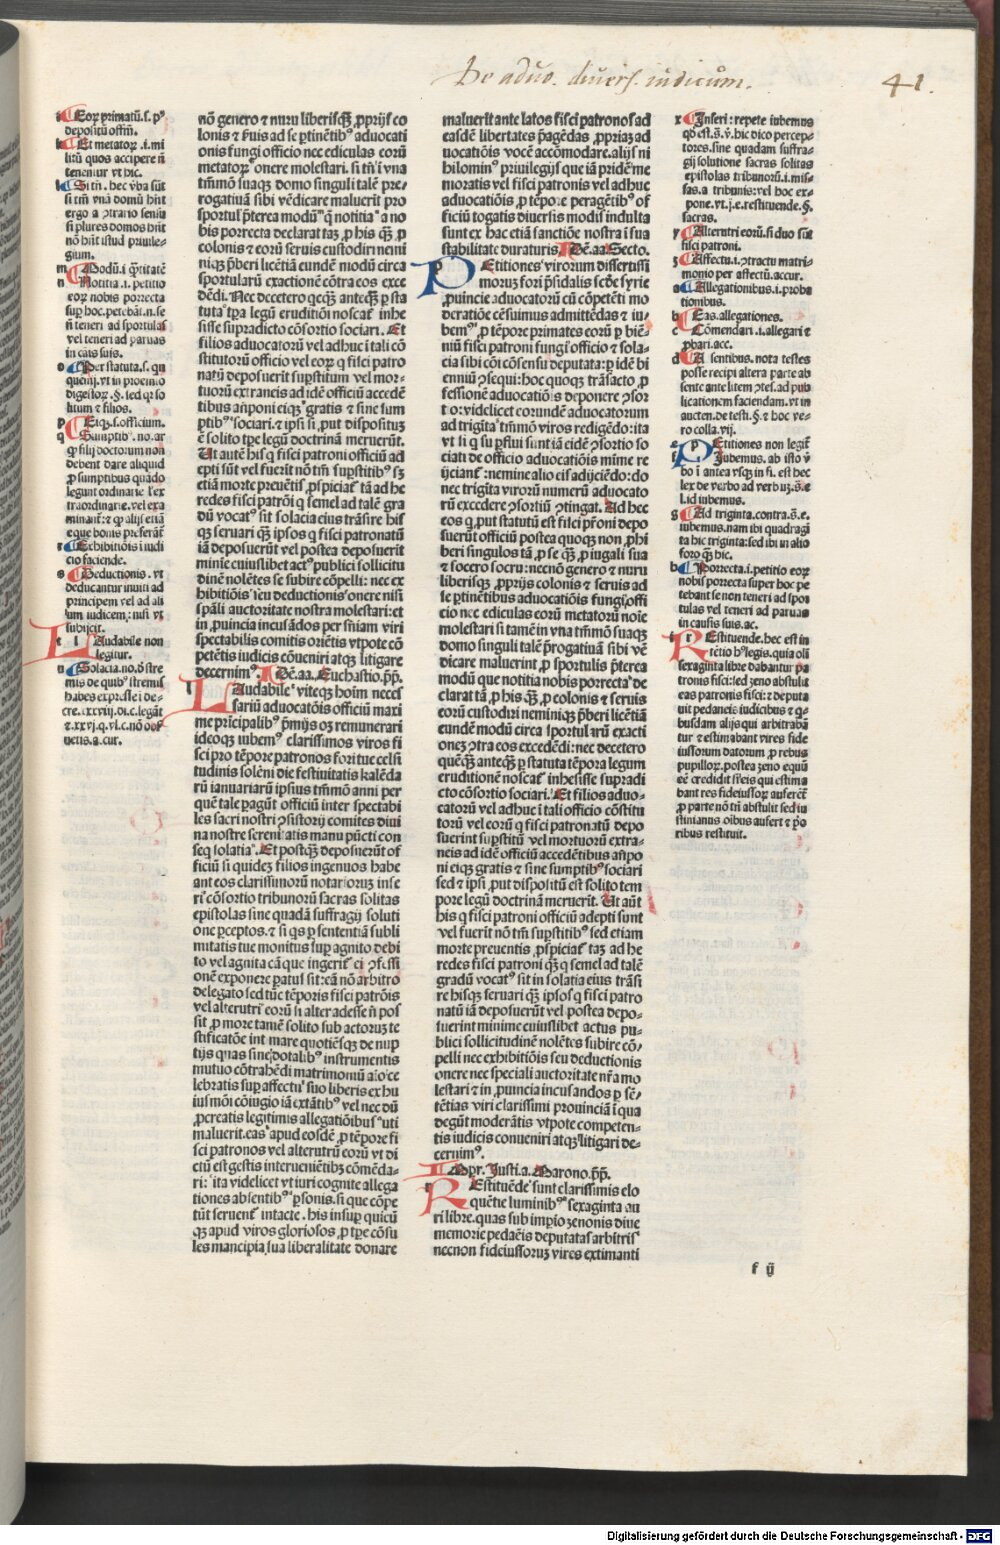 De aduo. diuers. iudicum.
41.
Eoꝝ primatū.s.pꝰ
depositū offm̄.
Et metatoꝝ .i.mi
litū quos accipere ñ
tenentur vt hic.
Si tñ. hec v̄ba sūt
si tm̄ vnā domū hn̄t
ergo a ꝯtrario sensu
si plures domos hn̄t
nō hn̄t istud priuile-
gium.
Modū.i q̄titatē
Notitia.i. petitio
eoꝝ nobis porrecta
sup hoc.petebāt.n.se
ñ teneri ad sportulas
vel teneri ad paruas
in cāis suis.
Per statuta.s. qn
litum ⁊ filios.
Eiꝰ.s.officium.
Sumptibꝰ.no.ar
ꝙ filij doctorum non
debent dare aliquid
ꝓ sumptibus quādo
legunt ordinarie l'ex
traordinarie.vel exa
minant̄:⁊ ꝙ alijs etiā
eque bonis preferāt̄
Exhibitiōis iudi
cio faciende.
Deductionis.vt
deducantur inuiti ad
principem vel ad ali
um iudicem: nisi vt
subijcit.
Laudabile non
legitur.
Solacia.no.ꝯ stre
mis de quibꝰ stremis
habes expresse i de-
cre.
nō genero ⁊ nuru liberisqꝫ ꝓprijs co
lonis ⁊ ẜuis ad se ꝑtinētibꝰ aduocati
onis fungi officio nec ediculas eorū
metatoꝝ onere molestari. si tñ i vna
tm̄mō suaqꝫ domo singuli talē pre-
rogatiuā sibi vēdicare maluerit pro
sportul p̄terea modū q̄ notitia a no
bis porrecta declarat taꝫ ꝓ his qꝫ ꝓ
colonis ⁊ eorū seruis custodiri nemi
niqꝫ p̄beri licētiā eundē modū circa
sportularū exactionē cōtra eos exce
dēdi. Nec decetero qcqꝫ anteqꝫ ꝑ sta
tuta tꝑa legū eruditiōi noscat̄ inhe
sisse supradicto cōsortio sociari. Et
filios aduocatorū vel adhuc i tali cō
stitutorū officio vel eorꝝ q fisci patro
natū deposuerit supstitum vel mor-
tuorū extraneis ad idē officiū accedē
tibus añponi eiqꝫ gratis ⁊ sine sum
ptibꝰ sociari. ⁊ ipsi si ꝓut dispositūꝫ
ē solito tꝑe legū doctrinā meruerūt.
Ut autē his q fisci patroni officiū ad
epti sūt vel fuerit nō tm̄ supstitibꝰ sꝫ
etiā morte preuētis ꝓspiciat̄ tā ad he
redes fisci patrōi q semel ad talē gra
dū vocatꝰ sit solacia eius trāsire his
qꝫ seruari qꝫ ipsos q fisci patronatū
iā deposuerūt vel postea deposuerit
minīe cuiuslibet actꝰ publici sollicitu
dinē nolētes se subire cōpelli: nec ex
hibitiōis seu deductionis onere nisi
spāli auctoritate nostra molestari: et
in ꝓuincia incusādos per sn̄iam viri
spectabilis comitis oriētis vtpote cō
petētis iudicis cōueniri atqꝫ litigare
decernimꝰ. Idē.aa. Euchastio.pp̄.
Laudabile viteqꝫ hoīm neces
sariū aduocatōis officiū maxi
me principalibꝰ p̄mijs oꝫ remunerari
ideoqꝫ iubemꝰ clarissimos viros fi
sci pro tēpore patronos fori tue celsi
tudinis solēni die festiuitatis kalēda
rū ianuariarū ipsius trīmō anni per
quē tale ꝑagūt officiū inter spectabi
les sacri nostri ꝯsistorij comites diui
na nostre serenitatis manu pūcti con
seq solatia. Et postqꝫ deposuerūt of
ficiū si quidez filios ingenuos habe
ant eos clarissimorū notarioruꝫ inse
ri cōsortio tribunorū sacras solitas
epistolas sine quadā suffragij soluti
one ꝑceptos. ⁊ si qs ꝑ sententiā subli
mitatis tue monitus sup agnito debi
to vel agnita cā que ingerit̄ ei ꝯfessi
onē exponere ꝑatus sit: eā nō arbitro
delegato sed tūc tēporis fisci patrōis
vel alterutri eorū si alter adesse ñ pos
sit ꝓ more tamē solito sub actoruꝫ te
stificatōe int mare quotiēsqꝫ de nup
tijs quas sine dotalibꝰ instrumentis
mutuo cōtrahēdi matrimoniū aĩo ce
lebratis sup affectu suo liberis ex hu
iusmōi cōiugio iā extātibꝰ vel nec dū
ꝓcreatis legitimis allegatiōibus vti
maluerit.eas apud eosdē ꝓ tēpore fi
sci patronos vel alterutrū eorū vt di
ctū est gestis interuenietibꝫ cōmēda-
ri: ita videlicet vt iuri cognite allega
tiones absentibꝰ ꝑsonis. si que cōpe
tūt seruent̄ intacte. his insup quicū
qꝫ apud viros gloriosos ꝓ tꝑe cōsu
les mancipia sua liberalitate donare
maluerit ante latos fisci patronos ad
easdē libertates pāgēdas ꝓprias ad
uocatiōis vocē accōmodare.alijs ni
hilominꝰ priuilegijs que iā pridē me
moratis vel fisci patronis vel adhuc
aduocatiōis ꝓ tēpore peragētibꝰ of
ficiū togatis diuersis modis indulta
sunt ex hac etiā sanctiōe nostra i sua
stabilitate duraturis. Idē.aa. Secto.
Petitiones virorum disertissi
morum fori p̄sidalis scd̄e syrie
ꝓuincie aduocatorū cū cōpetēti mo
deratiōe cēsuimus admittēdas ⁊ iu-
bemꝰ ꝓ tēpore primates eorū ꝑ biē-
niū fisci patroni fungi officio ⁊ sola-
cia sibi cōi cōsensu deputata: ꝑ idē bi
enniū ꝯsequi: hoc quoqꝫ trāsacto ꝓ
fessionē aduocatiōis deponere ꝯsor
tio: videlicet eorundē aduocatorum
ad trigīta tm̄mō viros redigēdo: ita
vt si q su ꝑsuī sunt iā eidē ꝯsortio so
ciati de officio aduocatiōis mīme re
ijciant̄: nemine alio eis adijciēdo: do
nec trigīta virorū numerū aduocato
rū excedere ꝯsortiū ꝯtingat. Ad hec
eos q ꝓut statutū est fisci pr̄oni depo
suerūt officiū postea quoqꝫ non ꝓhi
beri singulos tā ꝓ se qꝫ ꝓ iugali sua
⁊ socero socru: necnō genero ⁊ nuru
liberisqꝫ ꝓprijs colonis ⁊ seruis ad
se ꝑtinētibus aduocatiōis fungi offi
cio nec ediculas eorū metatorū noīe
molestari si tamē in vna tm̄mō suaqꝫ
domo singuli talē p̄rogatiuā sibi vē
dicare maluerint ꝓ sportulis p̄terea
modū que notitia nobis porrecta de
clarat tā ꝓ his qꝫ ꝓ colonis ⁊ seruis
eorū custodiri neminiqꝫ p̄beri licētiā
eundē modū circa sportularū exacti
oneꝫ ꝯtra eos excedēdi: nec decetero
quēqꝫ anteqꝫ ꝑ statuta tēpora legum
eruditionē noscat̄ inhesisse supradi
cto cōsortio sociari. Et filios aduo-
catorū vel adhuc i tali officio cōstitu
torū vel eorū q fisci patronatū depo
suerint supstitū vel mortuorū extra-
neis ad idē officiū accedētibus añpo
ni eiqꝫ gratis ⁊ sine sumptibꝰ sociari
sed ⁊ ipsi ꝓut dispositū est solito tem
pore legū doctrinā meruerit. Ut aūt
his q fisci patroni officiū adepti sunt
vel fuerit nō tm̄ supstitibꝰ sed etiam
morte preuentis ꝓspiciat̄ taꝫ ad he
redes fisci patroni qꝫ q semel ad talē
gradū vocatꝰ sit in solatia eius trāsi
re hisqꝫ seruari qꝫ ipsos q fisci patro
natū iā deposuerūt vel postea depo-
suerint minime cuiuslibet actus pu-
blici sollicitudinē nolētes subire cō-
pelli nec exhibitiōis seu deductionis
onere nec speciali auctoritate nr̄a mo
lestari ⁊ in ꝓuincia incusandos ꝑ sē-
tētias viri clarissimi prouinciā i qua
degūt moderātis vtpote competen-
tis iudicis conueniri atqꝫ litigari de-
cernimꝰ.
Impr. Iusti.a. Barono.pp̄.
Restituēde sunt clarissimis elo
quētie luminibꝰ sexaginta au
ri libre.quas sub impio zenonis diue
memorie pedaneis deputatas arbitris
necnon fideiussoruꝫ vires extimanti
Inseri: repete iubemus
qd̄ est.s̄.v̄.hic dico percep-
tores.sine quadam suffra-
gij solutione sacras solitas
epistolas tribunorū.i.mis-
sas.a tribunis: vel hoc ex-
pone.vt.j.e.restituende.§.
sacras.
Alterutri eorū.si duo sūt
fisci patroni.
Affectu.i.ꝯtractu matri-
monio per affectū.accur.
Allegationibus.i.proba
tionibus.
Eas.allegationes.
Cōmendari .i.allegari ⁊
ꝓbari.acc.
Absentibus. nota testes
posse recipi altera parte ab
sente ante litem ꝯtes.ad pub
licationem faciendam.vt in
aucten.de testi.§. ⁊ hoc ve-
ro colla.vij.
Petitiones non legit̄
Iubemus. ab isto v̄
bo i antea vsqꝫ in fi. est hec
lex de verbo ad verbuꝫ.s̄.e
l.id iubemus.
Ad triginta.contra.s̄.e.
iubemus.nam ibi quadragi
ta hic triginta: sed ibi in alio
foro qꝫ hic.
Porrecta.i.petitio eoꝝ
nobis porrecta super hoc pe
tebant se non teneri ad spor
tulas vel teneri ad paruas
in causis suis.ac.
Restituende.hec est in
tētio hꝰ legis.quia oli
sexaginta libre dabantur pa
tronis fisci: sed zeno abstulit
eas patronis fisci: ⁊ deputa
uit pedaneis iudicibus ⁊ q-
busdam alijs qui arbitrabā
tur ⁊ estimabant vires fide
iussorum datorum ꝓ rebus
pupilloꝝ.postea zeno equū
eē credidit si eis qui estima
bant res fideiussoꝝ auferēt̄
ꝓ parte nō tñ abstulit sed iu
stinianus oībus aufert ⁊ p̄o
ribus restituit.
f ij
Digitalisierung gefördert durch die Deutsche Forschungsgemeinschaft - DFG